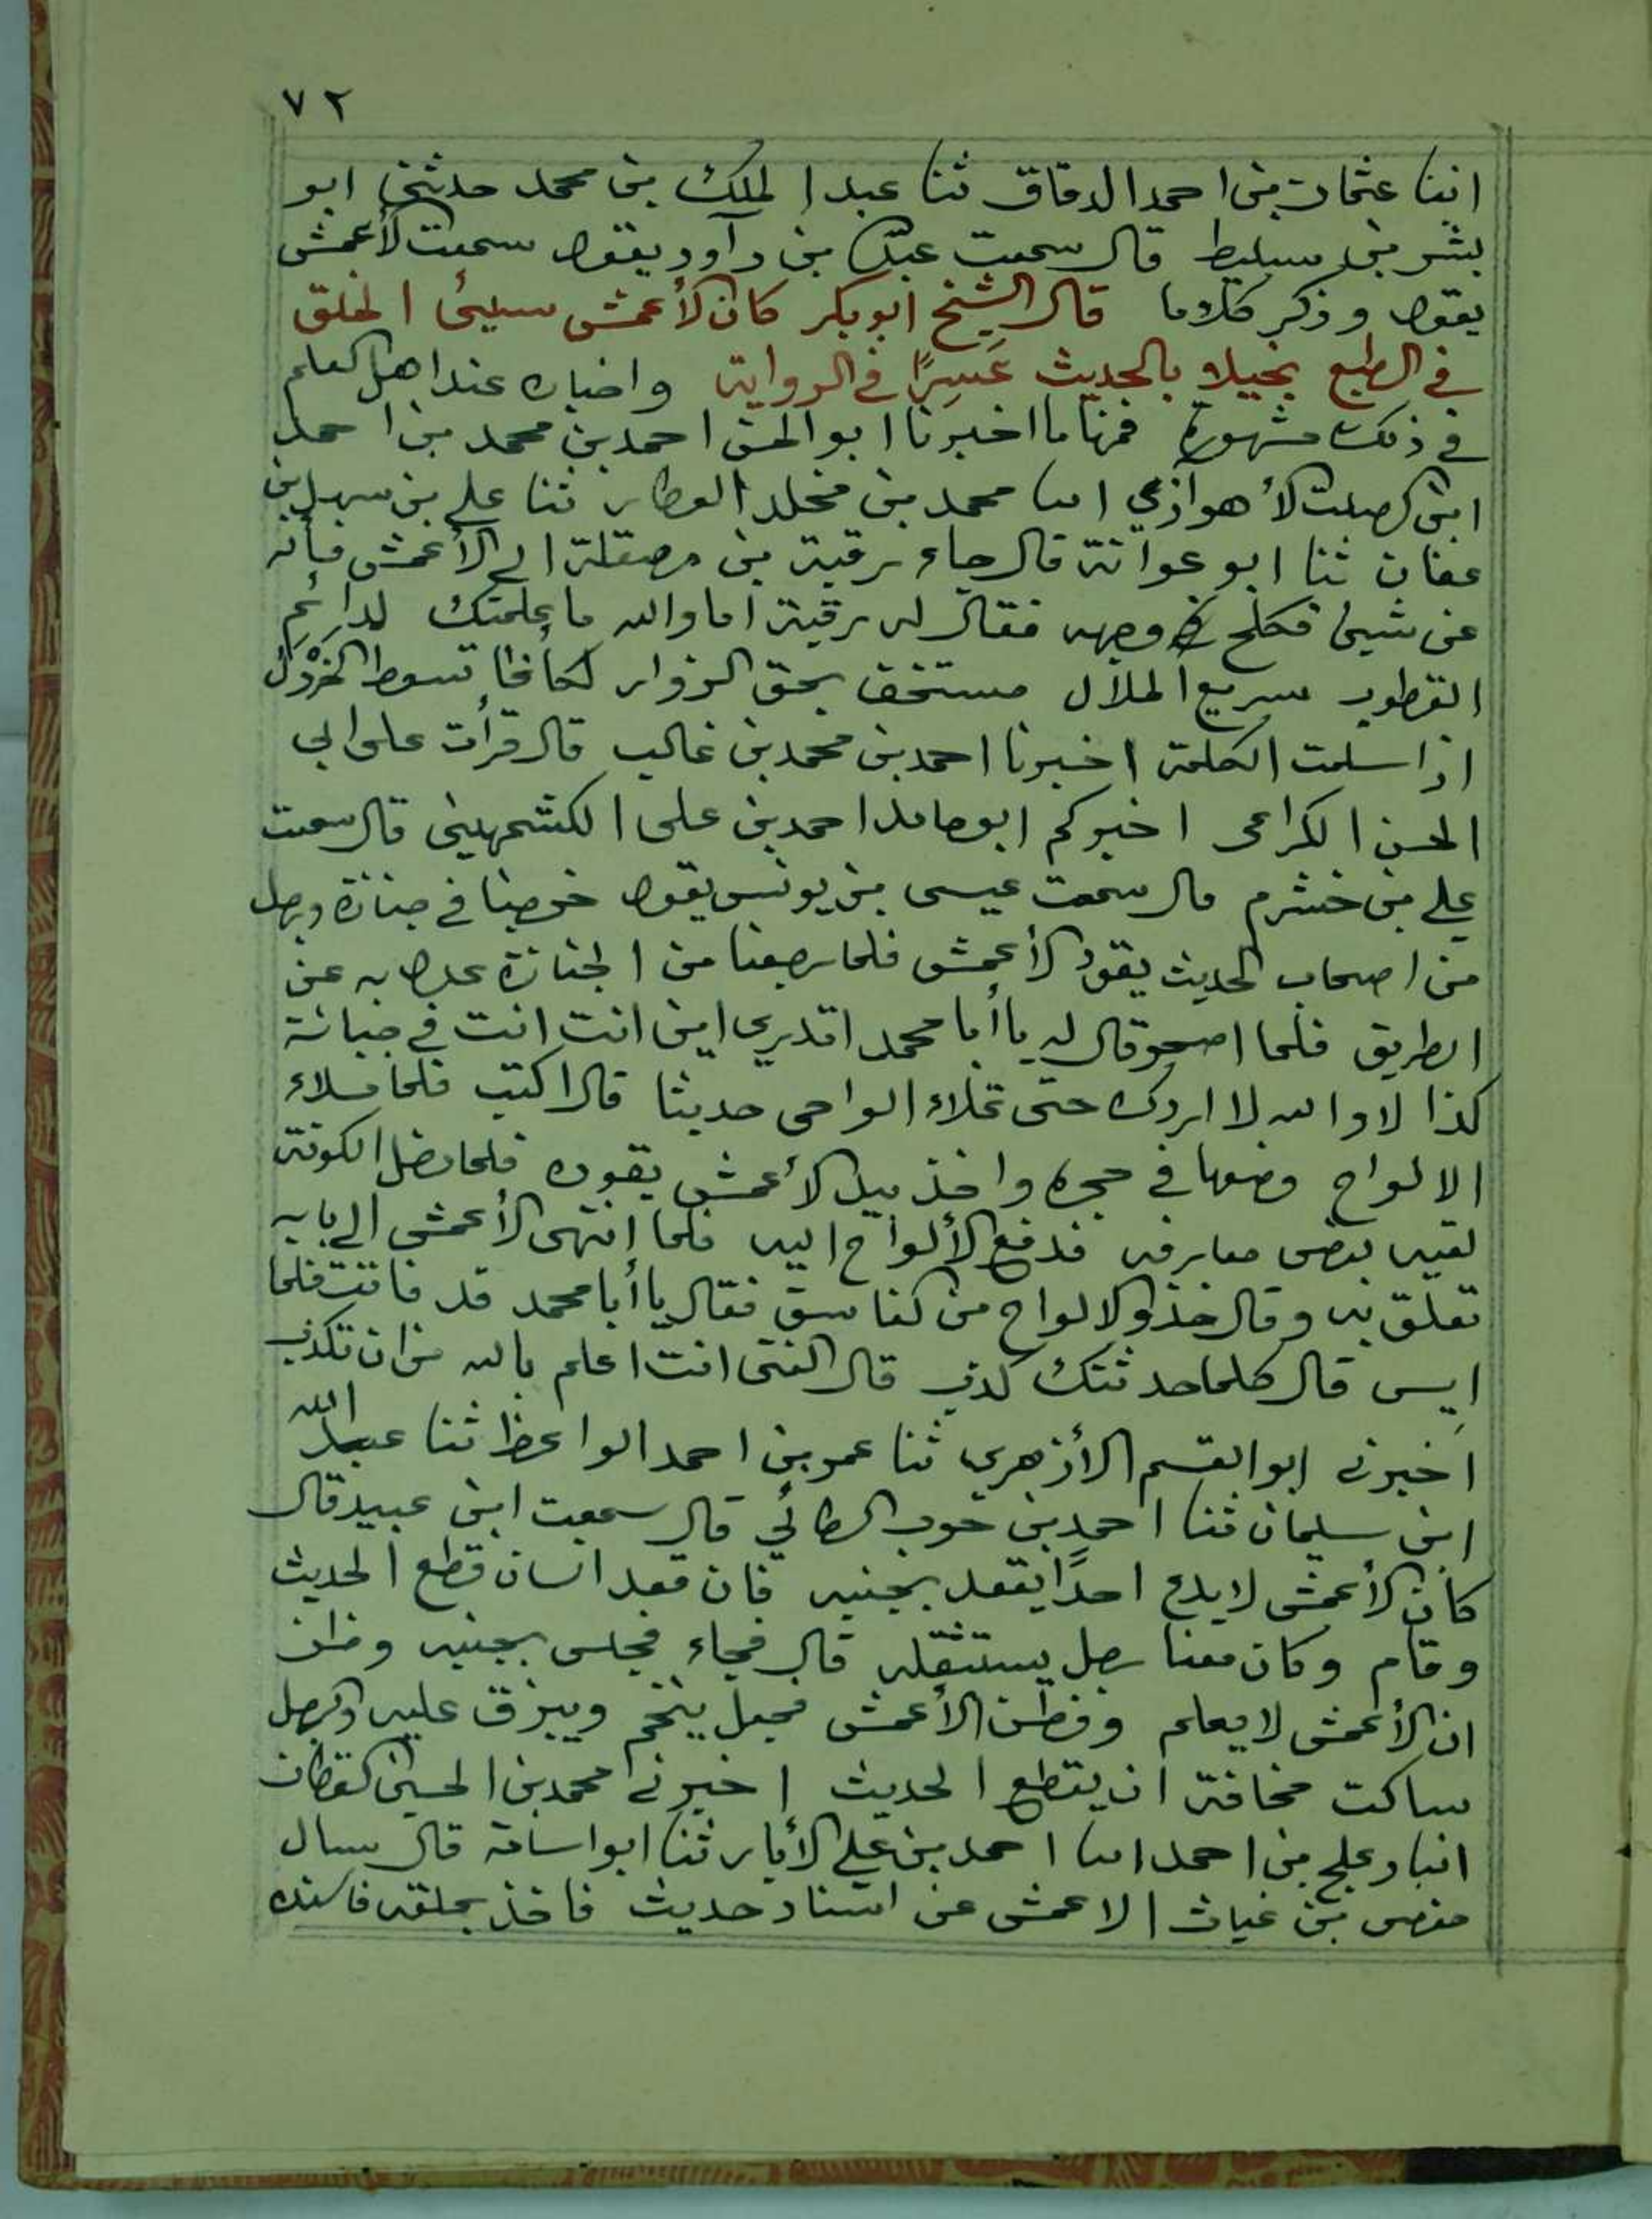 ٧٢
انبا عثمان بن احمد الدقاق ثنا عبد الملك بن محمد حدثني ابو
بشر بن سليط قال سمعت عبد الله بن داود يقول سمعت الأعمش
يقول وذكر كلاما قال الشيخ ابو بكر كان الأعمش سيئ الخلق
في الطبع بخيلا بالحديث عَسِرًا في الرواية واخباره عند اهل العلم
في ذلك مشهورة فمنها ما اخبرنا ابو الحسن احمد بن محمد بن احمد
ابن الصلت الأهوازي انبا محمد بن مخلد العطار ثنا علي بن سهل بن
عفان ثنا ابو عوانة قال جاء رقبة بن مصقلة الى الأعمش فسأله
عن شيئ فكلح في وجهه فقال له رقبة اما والله ما علمتك لدائم
القطوب سريع الملال مستخف بحق الزوار لكأنما تسعط الخردل
اذا سلمت الكلمة اخبرنا احمد بن محمد بن غالب قال قرأت على ابي
الحسن الكراعى اخبركم ابو حامد احمد بن على الكشمهينى قال سمعت
علي بن خشرم قال سمعت عيسى بن يونس يقول خرجنا في جنازة ورجل
من اصحاب الحديث يقود الأعمش فلما رجعنا من الجنازة عدل به عن
الطريق فلما اصحر قال له يا أبا محمد اتدري اين انت انت في جبانة
كذا لا والله لا اردك حتى تملاء الواحى حديثا قال اكتب فلما ملاء
الالواح وضعها في حجره واخذ بيد الأعمش يقوده فلما دخل الكوفة
لقيه بعض معارفه فدفع الألواح اليه فلما انتهى الأعمش الى بابه
تعلق به وقال خذوا الالواح من الفاسق فقال يا أبا محمد قد فاتت فلما
ايس قال كلما حدثتك كذب قال الفتى انت اعلم بالله من ان تكذب
اخبرني ابو القسم الأزهري ثنا عمر بن احمد الواعظ ثنا عبد الله
ابن سليمان ثنا احمد بن حرب الطائي قال سمعت ابن عبيد قال
كان الأعمش لا يدع احدًا يقعد بجنبه فان قعد انسان قطع الحديث
وقام وكان معنا رجل يستثقله قال فجاء فجلس بجنبه وظن
ان الأعمش لا يعلم وفطن الأعمش فجعل يتنخم ويبزق عليه والرجل
ساكت مخافة ان يقطع الحديث اخبرني محمد بن الحسين القطان
انبا دعلج بن احمد انبا احمد بن علي الأبار ثنا ابو اسامة قال سال
حفص بن غياث الاعمش عن اسناد حديث فاخذ بحلقه فاسنده